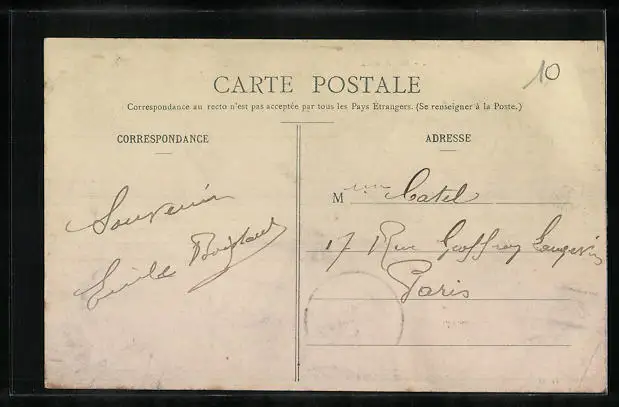 10
CARTE POSTALE
Correspondance au recto n'est pas acceptée par tous les Pays Etrangers. (Se renseigner à la Poste.)
CORRESPONDANCE
ADRESSE
Souvenir
Emile
M Catel
17 Rue Geoffroy Langevin
Paris